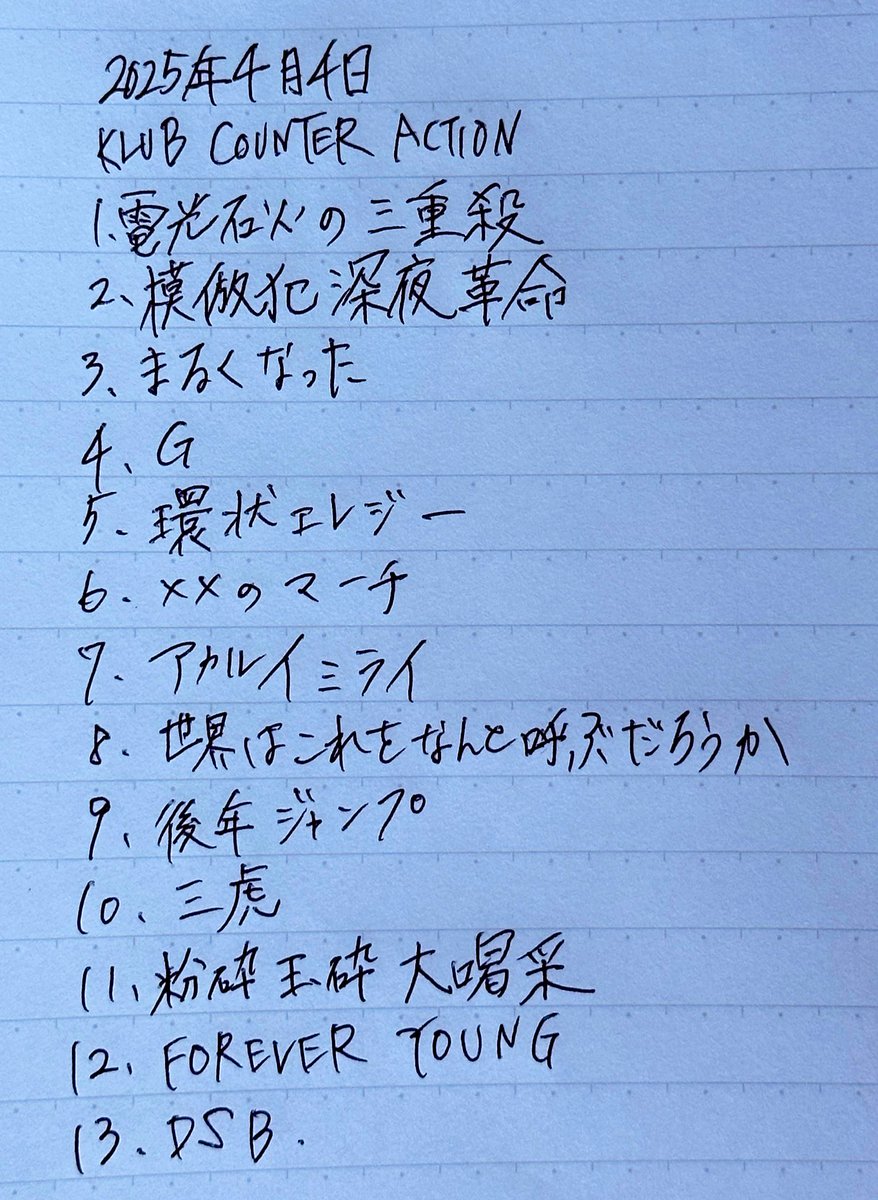 2025年4月4日
KLUB COUNTER ACTION
1.電光石火の三重殺
2、模倣犯深夜革命
3、まるくなった
4、G
5.環状エレジー
6.××のマーチ
7.アカルイミライ
8.世界はこれをなんと呼ぶだろうか
9、後年ジャンプ
10、三虎
11、粉砕玉砕大喝采
12、FOREVER YOUNG
13.DSB.